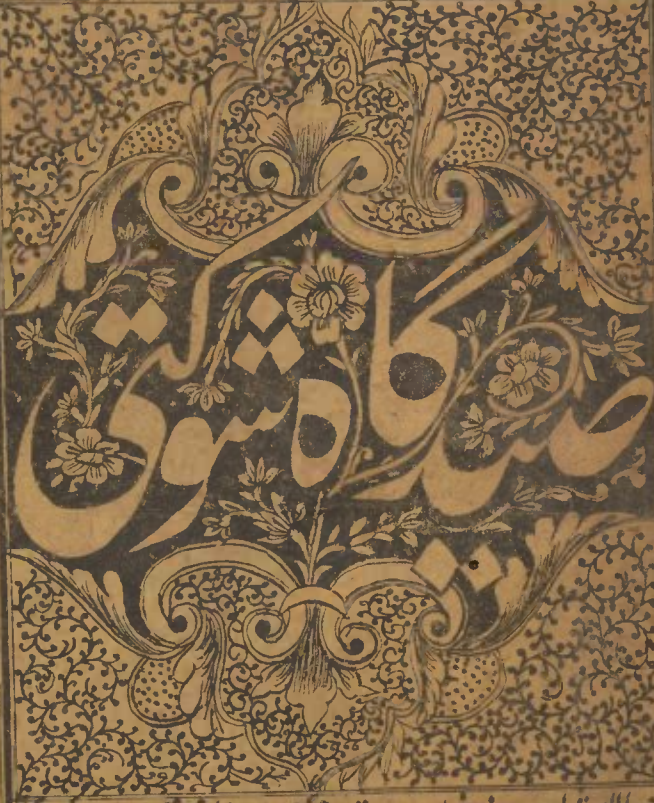 صیدگاه شوکتی